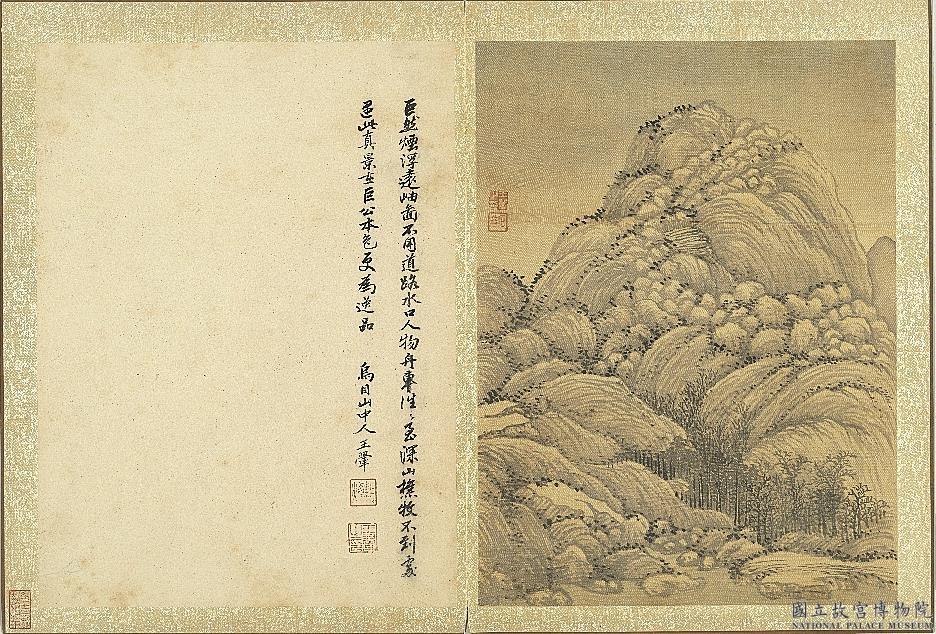 巨然煙浮遠岫畫不用道路水口人物舟車性〻至深山樵牧不到處
遇此真景在巨公本色更為逸品
烏目山中人王翬
國立故宮博物院
NATIONAL PALACE MUSEUM